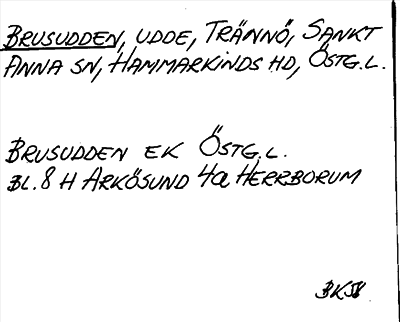 BRUSUDDEN, UDDE, TRÄNNÖ, SANKT
ANNA SN, HAMMARKINDS HD, ÖSTG.L.
BRUSUDDEN EK ÖSTG.L.
BL. 8 H ARKÖSUND 4a HERRBORUM